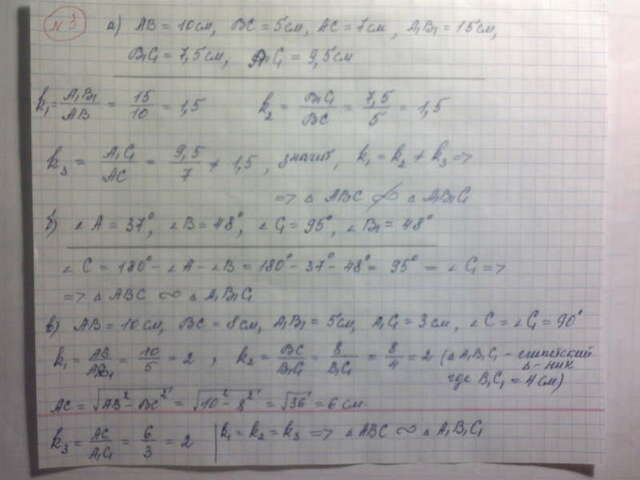 № 3
а) AB = 10см, BC = 5см, AC = 7см, A₁B₁ = 15см,
B₁C₁ = 7,5см, A₁C₁ = 9,5см
k₁ = A₁B₁/AB = 15/10 = 1,5 k₂ = B₁C₁/BC = 7,5/5 = 1,5
k₃ = A₁C₁/AC = 9,5/7 ≠ 1,5, значит, k₁ = k₂ ≠ k₃ =>
=> △ ABC ≁ △ A₁B₁C₁
б) ∠A = 37°, ∠B = 48°, ∠C₁ = 95°, ∠B₁ = 48°
∠C = 180° - ∠A - ∠B = 180° - 37° - 48° = 95° = ∠C₁ =>
=> △ ABC ∞ △ A₁B₁C₁
в) AB = 10см, BC = 8см, A₁B₁ = 5см, A₁C₁ = 3см, ∠C = ∠C₁ = 90°
k₁ = AB/A₁B₁ = 10/5 = 2, k₂ = BC/B₁C₁ = 8/B₁C₁ = 8/4 = 2 (△A₁B₁C₁ - египетский
△-ник
где B₁C₁ = 4см)
AC = √AB² - BC² = √10² - 8² = √36 = 6см
k₃ = AC/A₁C₁ = 6/3 = 2 | k₁ = k₂ = k₃ => △ABC ∞ △A₁B₁C₁